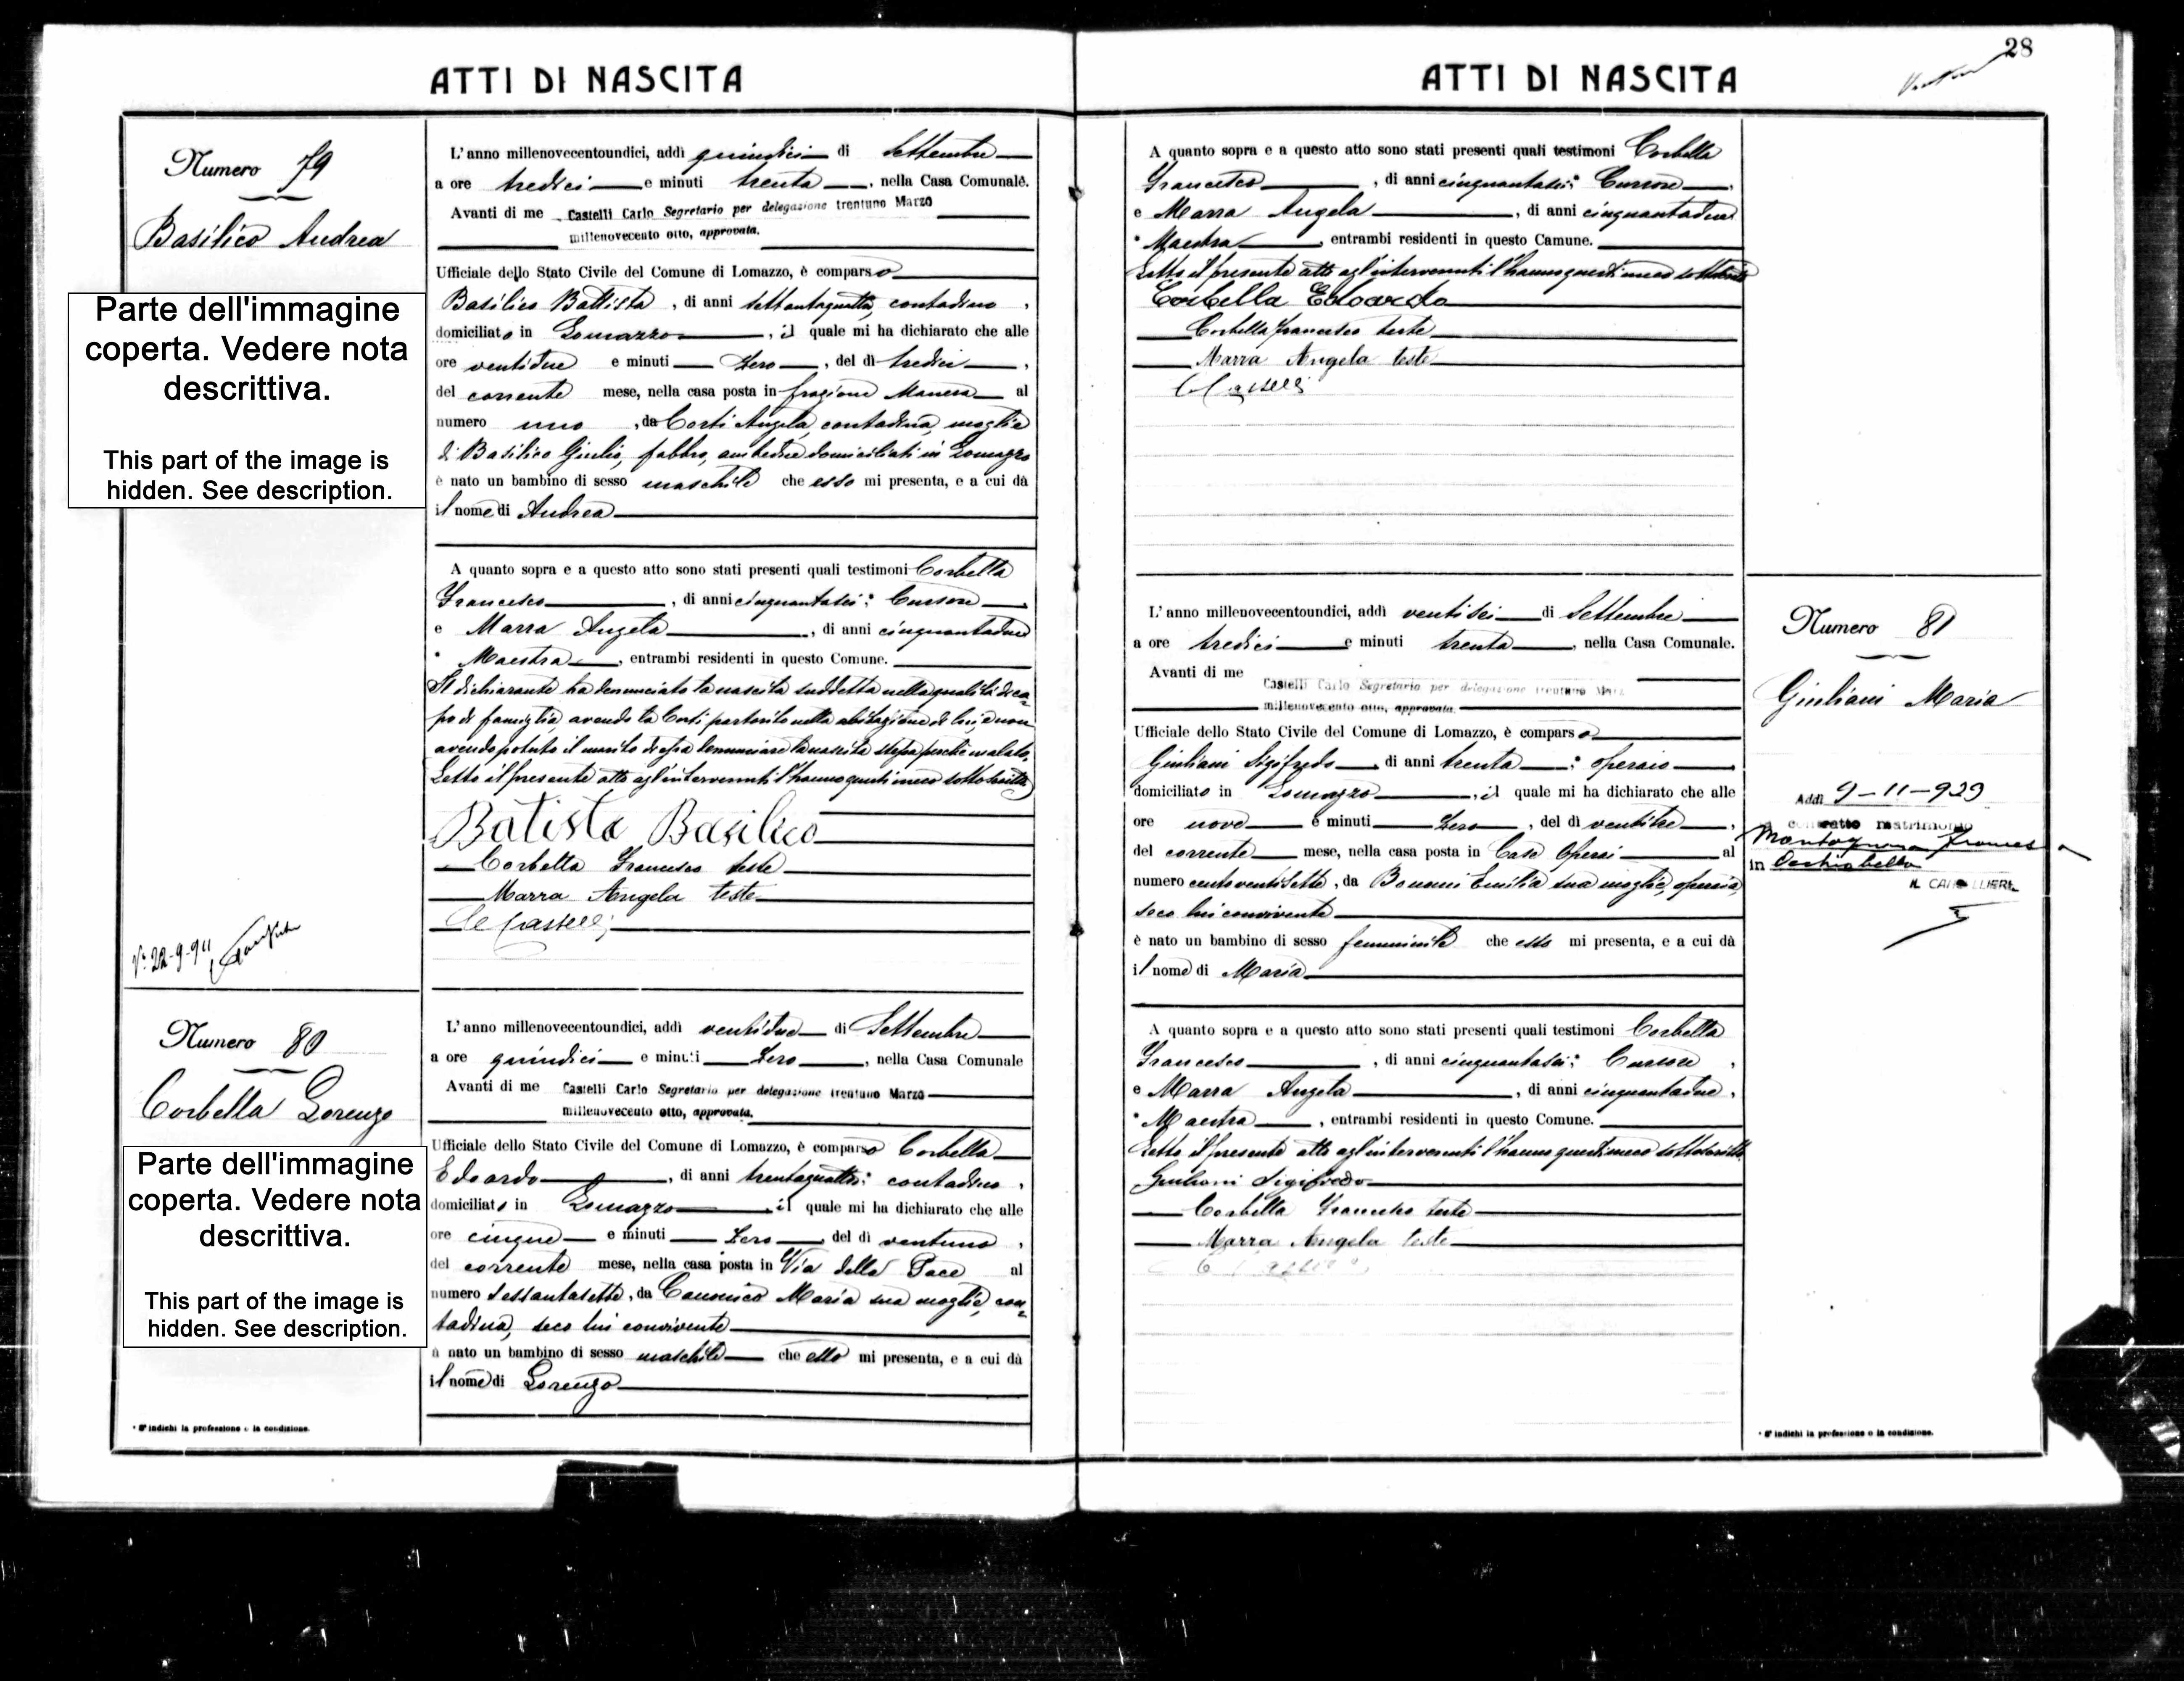 ATTI DI NASCITA
Numero 79
Basilico Andrea
Parte dell'immagine
coperta. Vedere nota
descrittiva.
This part of the image is
hidden. See description.
L'anno millenovecentoundici, addì quindici di Settembre
a ore tredici e minuti trenta, nella Casa Comunale.
Avanti di me Castelli Carlo Segretario per delegazione trentuno Marzo
millenovecento otto, approvata.
Ufficiale dello Stato Civile del Comune di Lomazzo, è comparso
Basilico Battista, di anni settantaquattro, contadino,
domiciliato in Lomazzo, il quale mi ha dichiarato che alle
ore ventidue e minuti zero, del dì tredici,
del corrente mese, nella casa posta in frazione Manera al
numero uno, da Corti Angela, contadina, moglie
di Basilico Giulio, fabbro, ambedue domiciliati in Lomazzo
è nato un bambino di sesso maschile che esso mi presenta, e a cui dà
il nome di Andrea
A quanto sopra e a questo atto sono stati presenti quali testimoni Corbella
Francesco, di anni cinquantasei: Cursore
e Marra Angela, di anni cinquantadue
* Maestra, entrambi residenti in questo Comune.
Il dichiarante ha denunciato la nascita suddetta nella qualità di ca=
po di famiglia, avendo la Corti partorito nella abitazione di lui, e non
avendo potuto il marito di essa denunciare la nascita stessa perché malato.
Letto il presente atto agl'intervenuti l'hanno questi meco sottoscritto
Batista Basilico
Corbella Francesco teste
Marra Angela teste
C Castelli
Vº 22-9-911
Numero 80
Corbella Lorenzo
Parte dell'immagine
coperta. Vedere nota
descrittiva.
This part of the image is
hidden. See description.
L'anno millenovecentoundici, addì ventidue di Settembre
a ore quindici e minuti zero, nella Casa Comunale
Avanti di me Castelli Carlo Segretario per delegazione trentuno Marzo
millenovecento otto, approvata.
Ufficiale dello Stato Civile del Comune di Lomazzo, è comparso Corbella
Edoardo, di anni trentaquattro: contadino,
domiciliato in Lomazzo, il quale mi ha dichiarato che alle
ore cinque e minuti zero del dì ventuno,
del corrente mese, nella casa posta in Via della Pace al
numero sessantasette, da Canonico Maria sua moglie, con=
tadina, seco lui convivente
è nato un bambino di sesso maschile che esso mi presenta, e a cui dà
il nome di Lorenzo
* S' indichi la professione o la condizione.
28
ATTI DI NASCITA
A quanto sopra e a questo atto sono stati presenti quali testimoni Corbella
Francesco, di anni cinquantasei: Cursore,
e Marra Angela, di anni cinquantadue
* Maestra, entrambi residenti in questo Camune.
Letto il presente atto agl'intervenuti l'hanno questi meco sottoscritto
Corbella Edoardo
Corbella Francesco teste
Marra Angela teste
C Castelli
Numero 81
Giuliani Maria
L'anno millenovecentoundici, addì ventisei di Settembre
a ore tredici e minuti trenta, nella Casa Comunale.
Avanti di me Castelli Carlo Segretario per delegazione trentuno Marzo
millenovecento otto, approvata.
Ufficiale dello Stato Civile del Comune di Lomazzo, è comparso
Giuliani Sigifredo, di anni trenta: operaio
domiciliato in Lomazzo, il quale mi ha dichiarato che alle
ore nove e minuti zero, del dì ventitre,
del corrente mese, nella casa posta in Case Operai al
numero centoventisette, da Bonomi Emilia sua moglie, operaia,
seco lui convivente
è nato un bambino di sesso femminile che esso mi presenta, e a cui dà
il nome di Maria
Addì 9-11-929
contratto matrimonio
in
IL CANCELLIERE
A quanto sopra e a questo atto sono stati presenti quali testimoni Corbella
Francesco, di anni cinquantasei: Cursore,
e Marra Angela, di anni cinquantadue,
* Maestra, entrambi residenti in questo Comune.
Letto il presente atto agl'intervenuti l'hanno questi meco sottoscritto
Giuliani Sigifredo
Corbella Francesco teste
Marra Angela teste
* S' indichi la professione o la condizione.